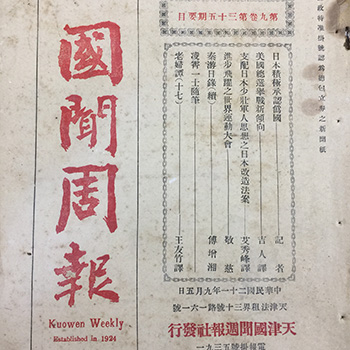 政特准掛號認為第四包立卷之新聞紙
第九卷第三十五期要目
日本積極承認偽國 記者
美國總選舉戰新傾向 吉人譯
支配日本少壯軍人思想之日本改造法案 艾秀峰譯
進步飛躍之世界運動大會 敬慈
秦游日錄（續） 傅增湘
凌霄一士隨筆
老婦譚（十七） 王友竹譯
中華民國二十一年九月五日
天津法租界三十號路一六一號
天津國聞週報社發行
電報掛號五三九一
國聞周報
Kuowen Weekly
Established in 1924